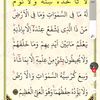 لَا تَأْخُذُهُ سِنَةٌ وَلَا نَوْمٌ
لَهُ مَا فِي السَّمَوَاتِ وَمَا فِي الْأَرْضِ
مَنْ ذَا الَّذِي يَشْفَعُ عِنْدَهُ إِلَّا بِإِذْنِهِ
يَعْلَمُ مَا بَيْنَ أَيْدِيهِمْ وَمَا خَلْفَهُمْ
وَلَا يُحِيطُونَ بِشَيْءٍ مِنْ عِلْمِهِ إِلَّا بِمَا شَاءَ
وَسِعَ كُرْسِيُّهُ السَّمَوَاتِ وَالْأَرْضَ
وَلَا يَئُودُهُ حِفْظُهُمَا وَهُوَ الْعَلِيُّ الْعَظِيمُ